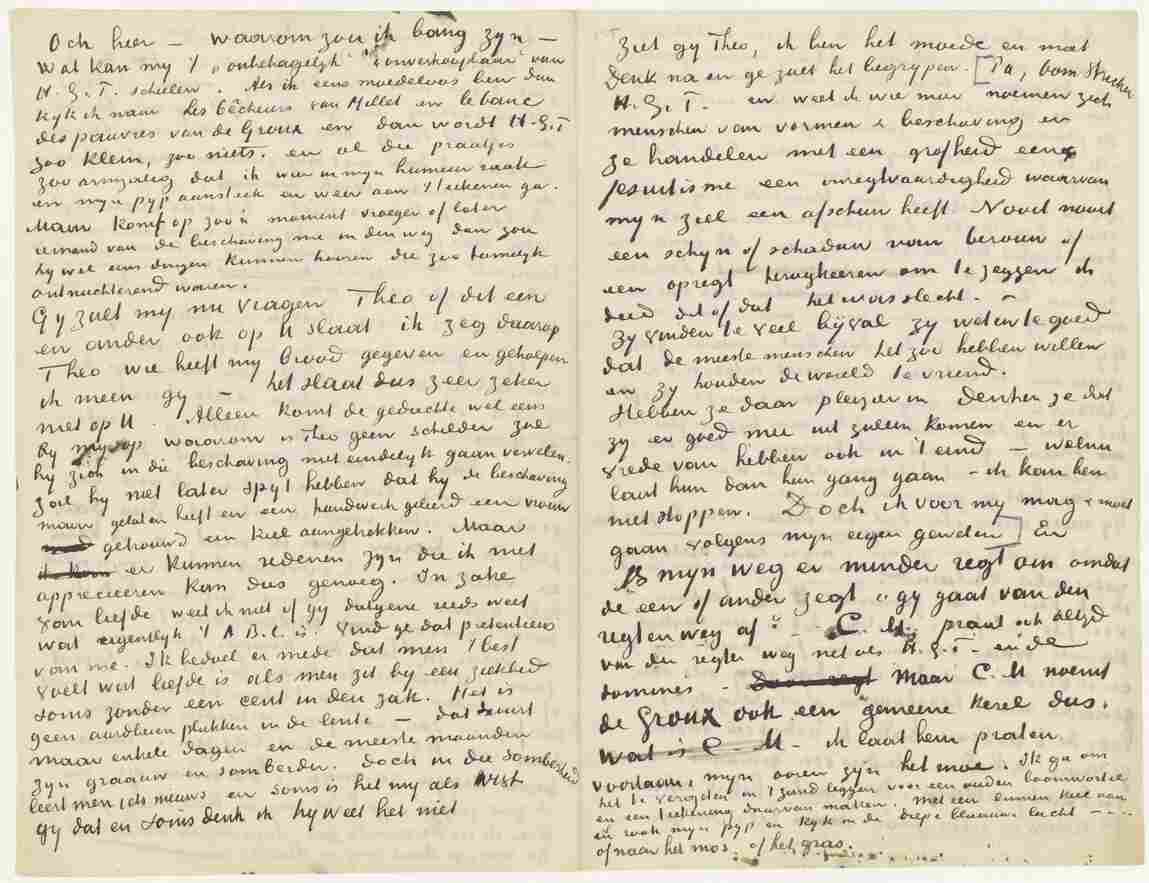 Och heer – waarom zou ik bang zyn –
Wat kan my 't „onbehagelyk" „onverkoopbaar" van
H.G.T. schelen. Als ik eens moedeloos ben dan
kyk ik naar les bêcheurs van Millet en le banc
des pauvres van de Groux en dan wordt H.G.T
zoo klein, zoo niets. en al die praatjes
zoo armzalig dat ik weer in myn humeur raak
en myn pyp aansteek en weer aan 't teekenen ga.
Maar komt op zoo'n moment vroeger of later
iemand van de beschaving me in den weg dan zou
hy wel eens dingen kunnen hooren die zoo tamelyk
ontnuchterend waren.
Gy zult my nu vragen Theo of dit een
en ander ook op U slaat ik zeg daarop
Theo wie heeft my brood gegeven en geholpen
ik meen gy – het slaat dus zeer zeker
niet op U. Alleen komt de gedachte wel eens
by my op waarom is Theo geen schilder zal
hy zich in die beschaving niet eindelyk gaan vervelen.
Zal hy niet later spyt hebben dat hy de beschaving
maar gelaten heeft en een handwerk geleerd een vrouw
getrouwd een kiel aangetrokken. Maar
er kunnen redenen zyn die ik niet
apprecieeren kan dus genoeg. In zake
van liefde weet ik niet of gy datgene reeds weet
wat eigentlyk 't A B.C. is. Vind ge dat pretentieus
van me. Ik bedoel er mede dat men 't best
voelt wat liefde is als men zit by een ziekbed
soms zonder een cent in den zak. Het is
geen aardbeien plukken in de lente – dat duurt
maar enkele dagen en de meeste maanden
zyn graauw en somberder. doch in die somberheid
leert men iets nieuws en soms is het my als wist
gy dat en soms denk ik hy weet het niet
Ziet gy Theo, ik ben het moede en mat
denk na en ge zult het begrypen. [Pa, oom Stricker
H.G.T. en weet ik wie meer noemen zich
menschen van vormen & beschaving en
ze handelen met een grofheid een
jesuitisme een onregtvaardigheid waarvan
myn ziel een afschuw heeft. Nooit nooit
een schyn of schaduw van berouw of
een opregt terugkeeren om te zeggen ik
deed dit of dat het was slecht. –
Zy vinden te veel byval zy weten te goed
dat de meeste menschen het zoo hebben willen
en zy houden de wereld te vriend.
Hebben ze daar plezier in denken ze dat
zy er goed mee uit zullen komen en er
vrede van hebben ook in 't eind – welnu
laat hun dan hun gang gaan – ik kan hen
niet stoppen. Doch ik voor my mag & moet
gaan volgens myn eigen geweten] En
Is myn weg er minder regt om omdat
de een of ander zegt „gy gaat van den
regten weg af" – C.M. praat ook altyd
van den regten weg net als H.G.T. en de
dominés – maar C.M noemt
de Groux ook een gemeene kerel dus.
wat is C.M – ik laat hem praten
voortaan, myn ooren zyn het moe. Ik ga om
het te vergeten in 't zand leggen voor een ouden boomwortel
en een teekening daarvan maken. Met een linnen kiel aan
en rook myn pyp en kyk in de diepe blaauwe lucht – – – .
of naar het mos of het gras.